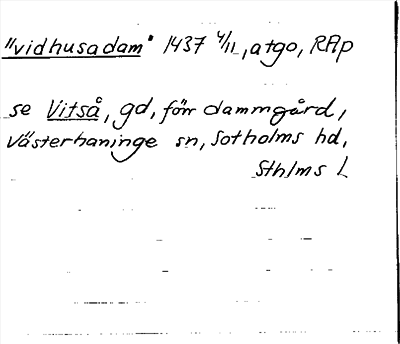 "vidhusadam" 1437 4/11, atgo, RAp
se Vitså, gd, förr dammgård,
Västerhaninge sn, Sotholms hd,
Sthlms L